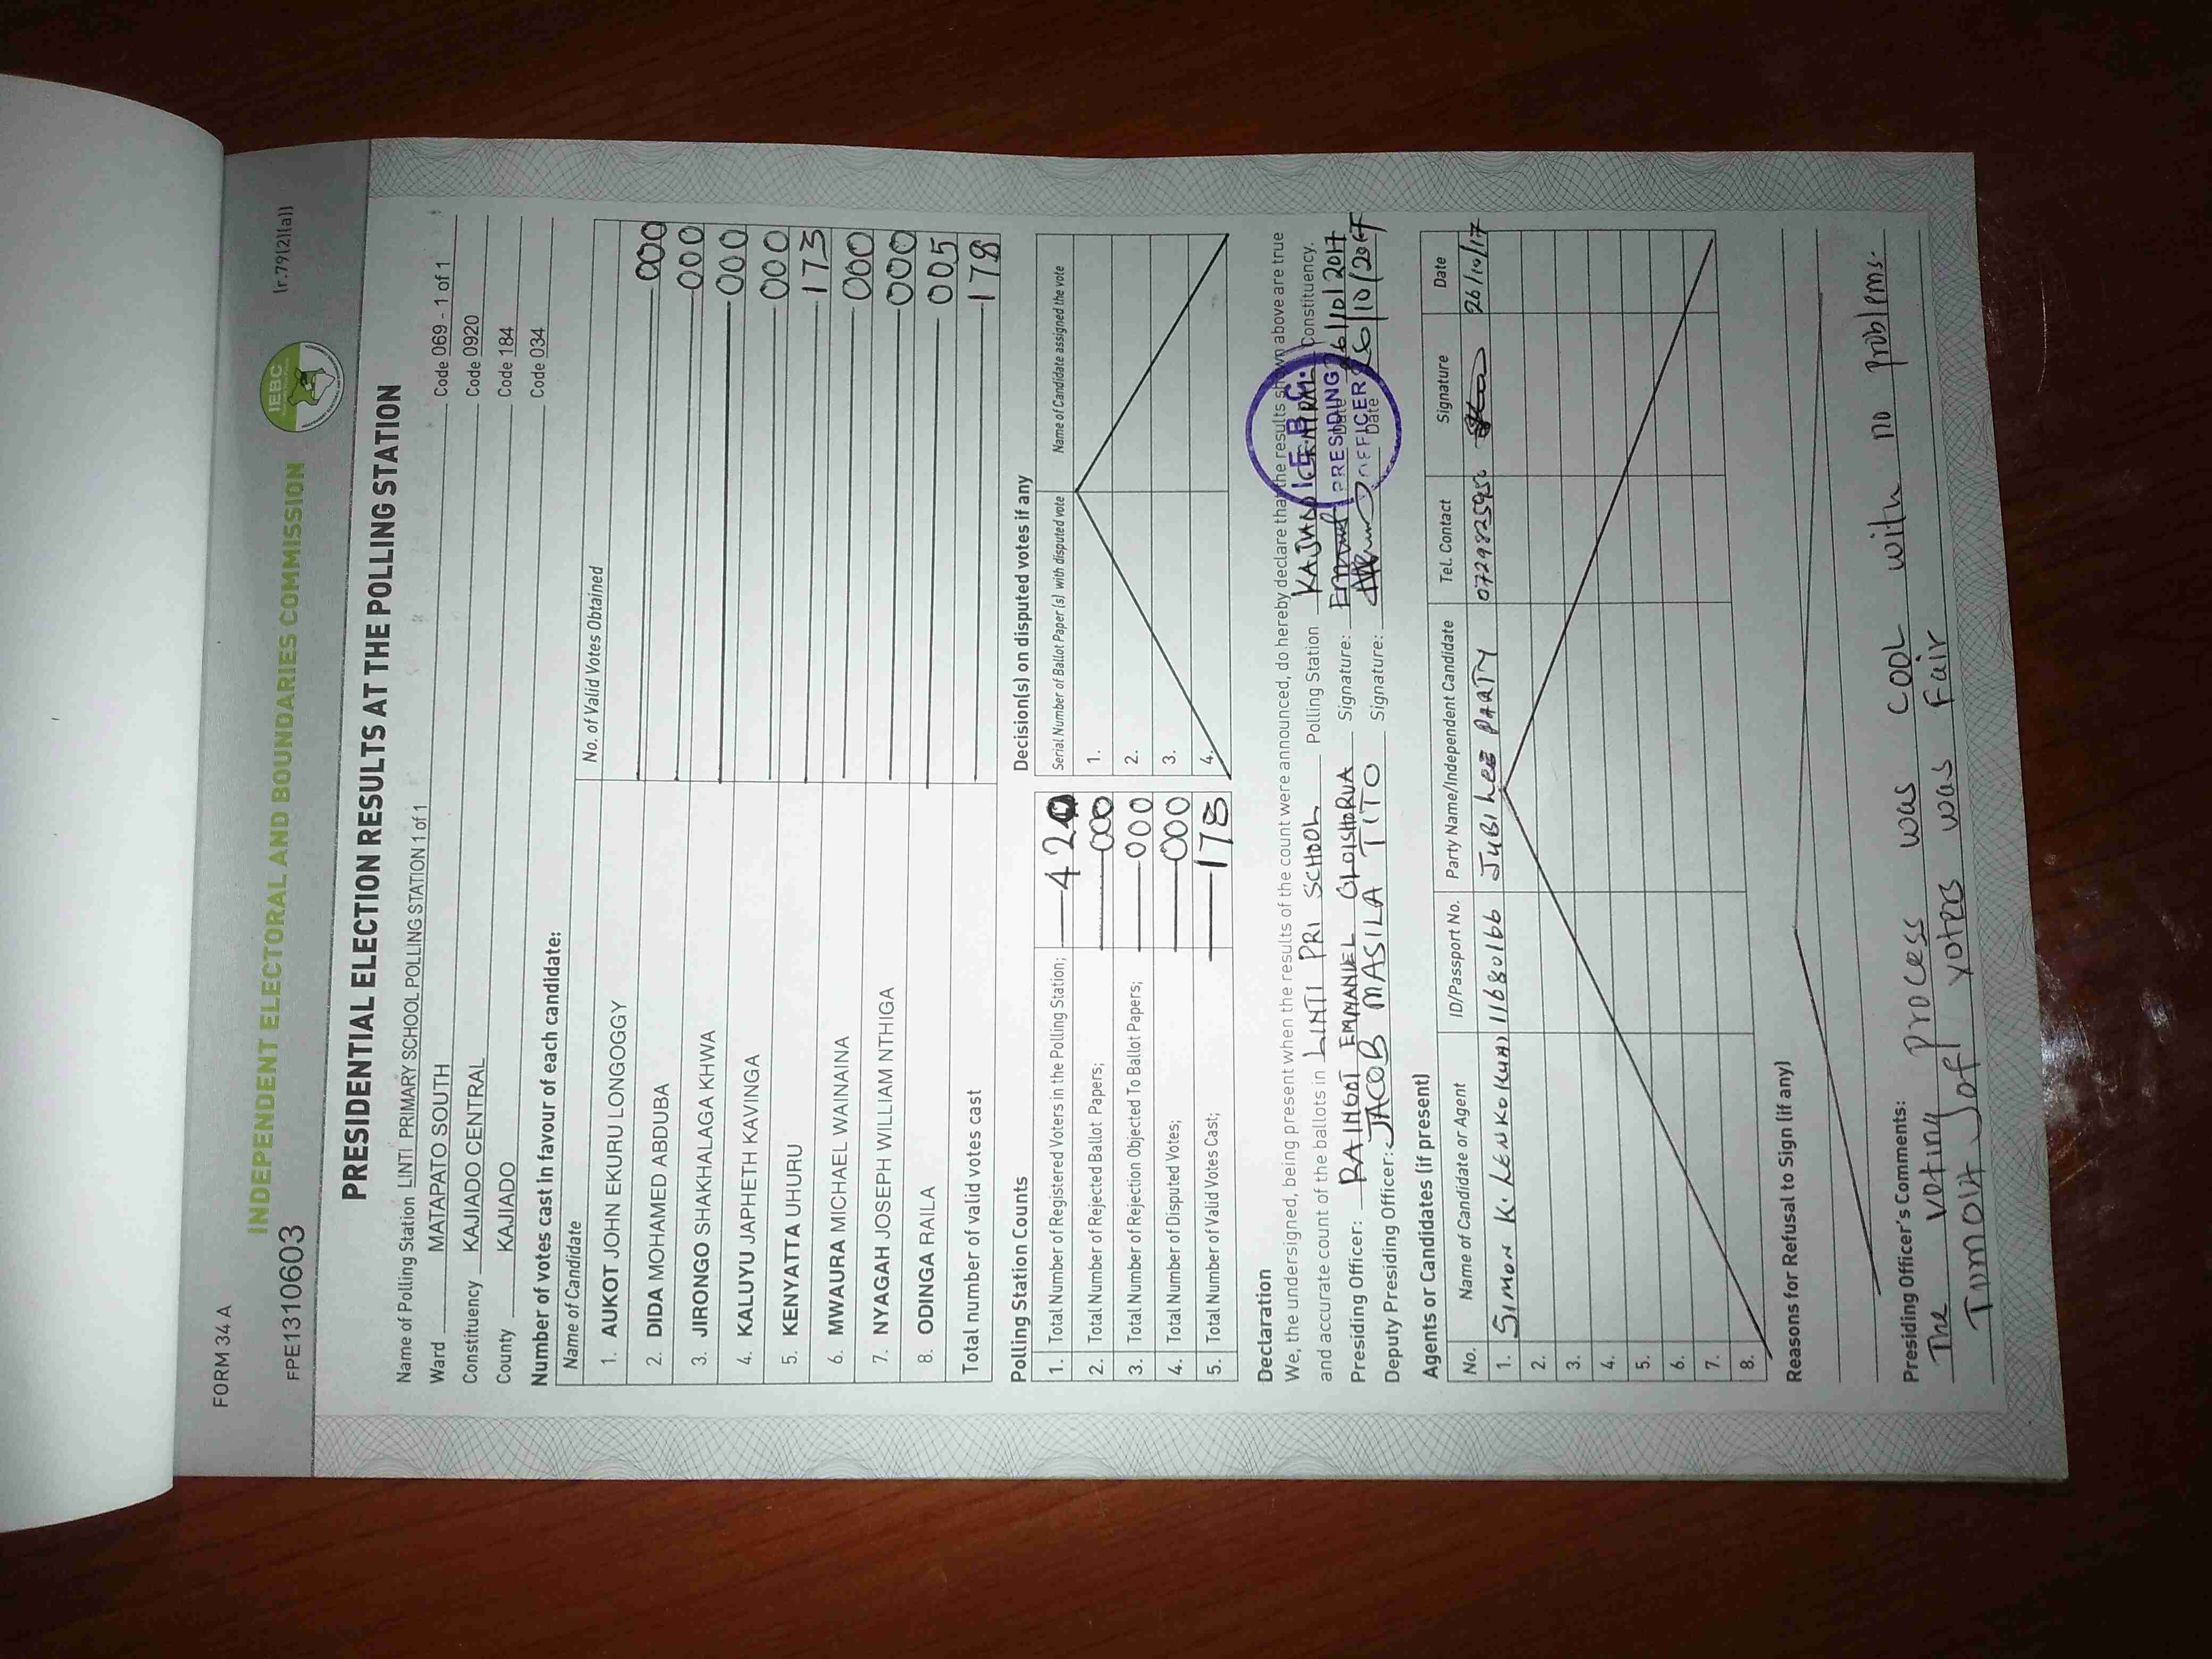 FORM 34 A
INDEPENDENT ELECTORAL AND BOUNDARIES COMMISSION
IEBC
(r.79(2)(a))
FPE1310603
PRESIDENTIAL ELECTION RESULTS AT THE POLLING STATION
Name of Polling Station LINTI PRIMARY SCHOOL POLLING STATION 1 of 1 Code 069 - 1 of 1
Ward MATAPATO SOUTH Code 0920
Constituency KAJIADO CENTRAL Code 184
County KAJIADO Code 034
Number of votes cast in favour of each candidate:
Name of Candidate No. of Valid Votes Obtained
1. AUKOT JOHN EKURU LONGOGGY 000
2. DIDA MOHAMED ABDUBA 000
3. JIRONGO SHAKHALAGA KHWA 000
4. KALUYU JAPHETH KAVINGA 000
5. KENYATTA UHURU 173
6. MWAURA MICHAEL WAINAINA 000
7. NYAGAH JOSEPH WILLIAM NTHIGA 000
8. ODINGA RAILA 005
Total number of valid votes cast 178
Polling Station Counts
1. Total Number of Registered Voters in the Polling Station; 420
2. Total Number of Rejected Ballot Papers; 000
3. Total Number of Rejection Objected To Ballot Papers; 000
4. Total Number of Disputed Votes; 000
5. Total Number of Valid Votes Cast; 178
Decision(s) on disputed votes if any
Serial Number of Ballot Paper (s) with disputed vote Name of Candidate assigned the vote
1.
2.
3.
4.
Declaration
We, the undersigned, being present when the results of the count were announced, do hereby declare that the results shown above are true
and accurate count of the ballots in LINTI PRI SCHOOL Polling Station Constituency.
Presiding Officer: EMMANUEL Signature: Date 26/10/2017
Deputy Presiding Officer: JACOB MASILA TITO Signature: Date 26/10/2017
I.E.B.C.
PRESIDING
OFFICER
Agents or Candidates (if present)
No. Name of Candidate or Agent ID/Passport No. Party Name/Independent Candidate Tel. Contact Signature Date
1. SIMON K. 11680166 JUBILEE PARTY 0729825952 26/10/17
2.
3.
4.
5.
6.
7.
8.
Reasons for Refusal to Sign (if any)
Presiding Officer's Comments:
The voting process was COOL with no problems.
of voters was Fair